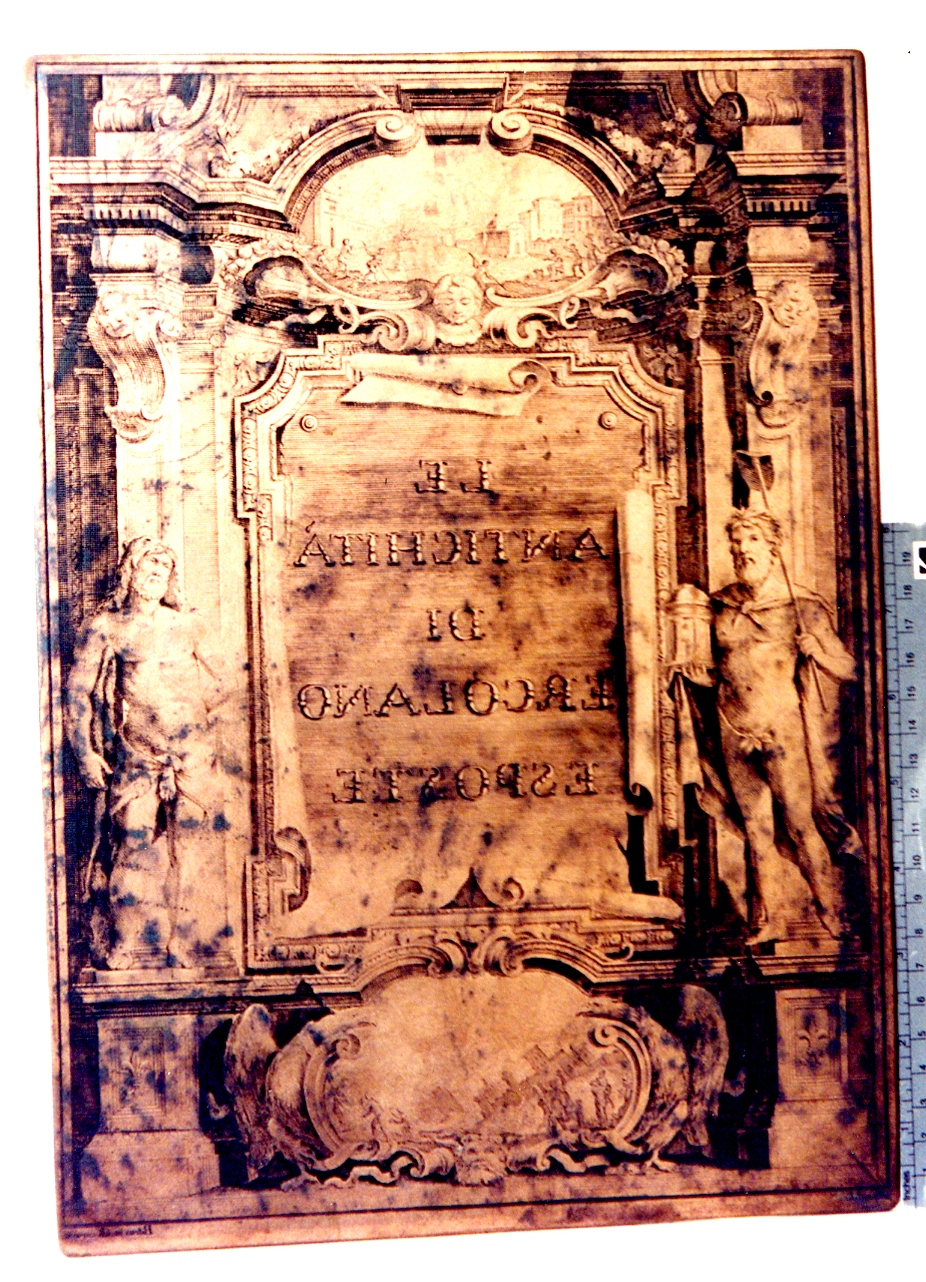 LE
ANTICHITÁ
DI
ERCOLANO
ESPOSTE
19
18
17
16
15
14
13
12
11
10
9
8
7
6
5
4
3
2
1
Inches